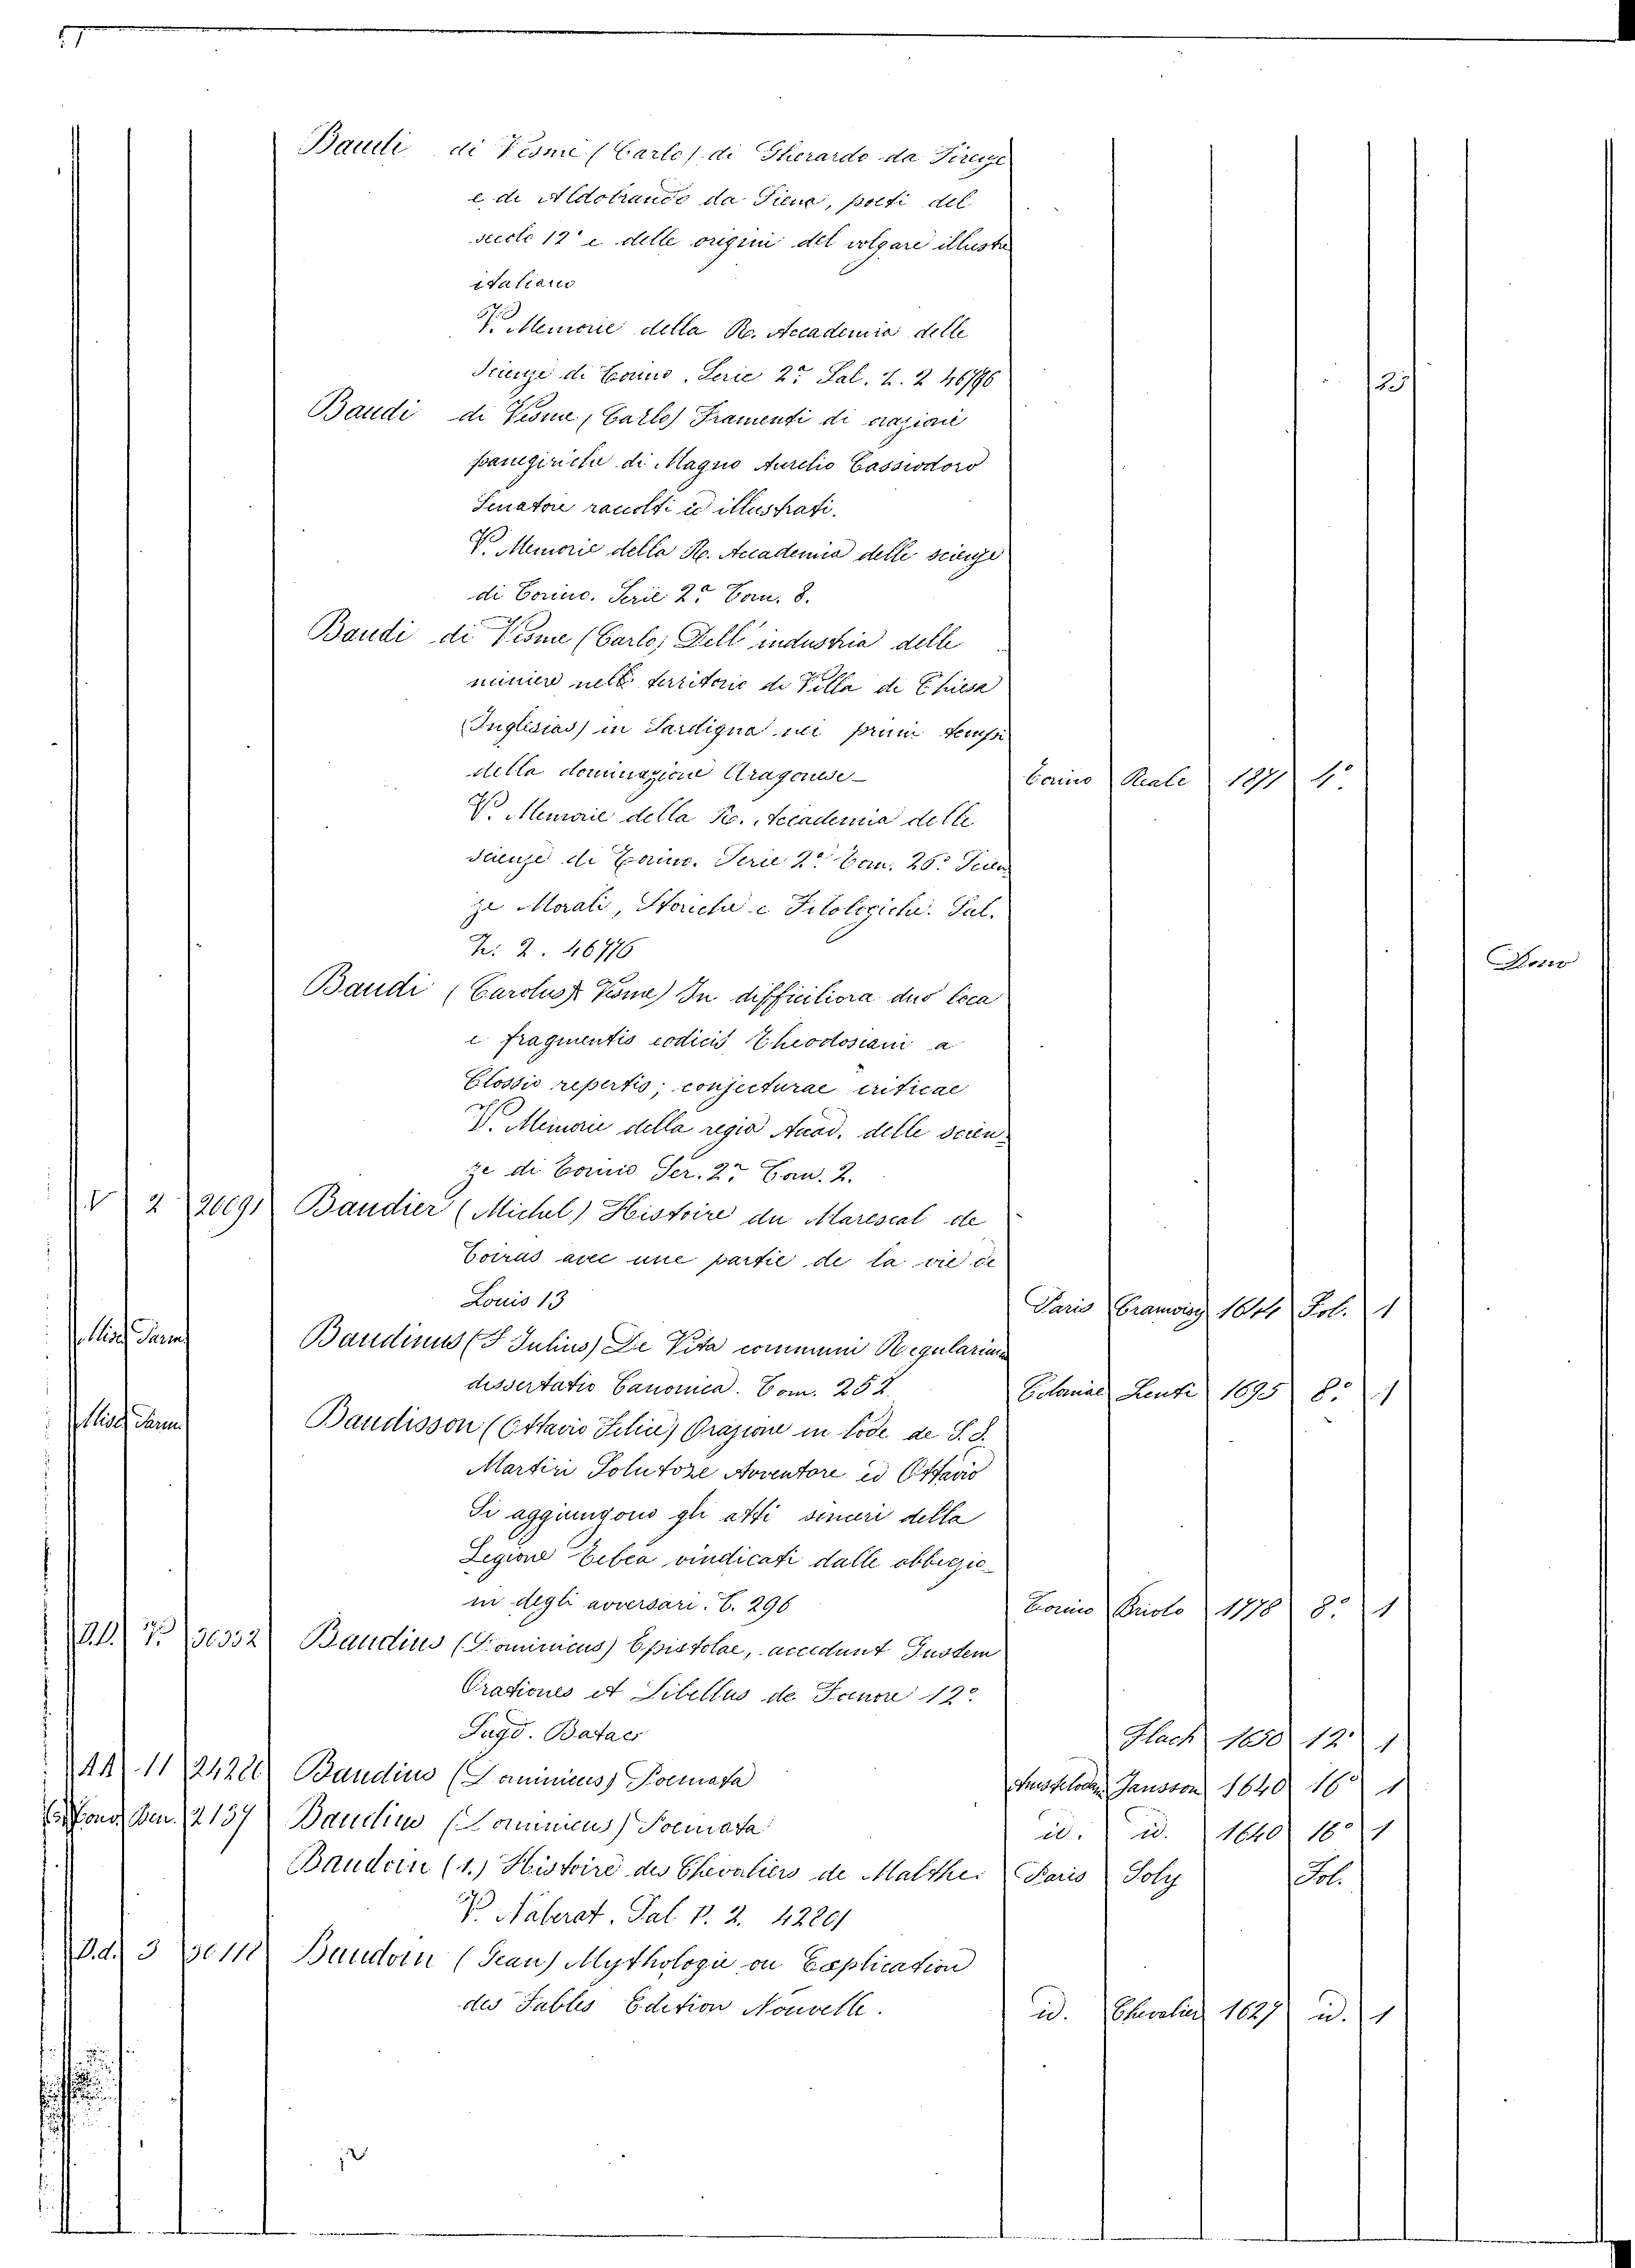 Baudi di Vesme (Carlo) di Gherardo da Firenze
e di Aldobrando da Siena, poeti del
secolo 12° e delle origini del volgare illustre
italiano
V. Memorie della R. Accademia delle
Scienze di Torino. Serie 2ª Sal. Z. 2 46776 23
Baudi di Vesme (Carlo) Framenti di orazioni
panegiriche di Magno Aurelio Cassiodoro
Senatore raccolti ed illustrati.
V. Memorie della R. Accademia delle scienze
di Torino. Serie 2ª Tom. 8.
Baudi di Vesme (Carlo) Dell'industria delle
miniere nell territorio di Villa di Chiesa
(Inglesias) in Sardigna nei primi tempi
della dominazione Aragonese - Torino Reale 1871 4°.
V. Memorie della R. Accademia delle
scienze di Torino. Serie 2ª Tom. 26° Scien
ze Morali, Storiche e Filologiche. Sal.
Z. 2. 46776 Dono
Baudi (Carolus Vesme) In difficiliora duo loca
e fragmentis codicis Theodosiani a
Clossio repertis; conjecturae criticae
V. Memorie della regia Accad. delle scien-
ze di Torino Ser. 2ª Tom. 2.
V 2 20091 Baudier (Michel) Histoire du Marescal de
Toiras avec une partie de la vie de
Louis 13 Paris Cramoisy 1644 Fol. 1
Misc. Farm. Baudinus (F Julius) De Vita communi Regularium
dissertatio Canonica. Tom. 252 Coloniae Lenti 1695 8° 1
Misc. Farm. Baudisson (Ottavio Felice) Orazione in lode de S.S.
Martiri Solutore Avventore ed Ottavio
Si aggiungono gli atti sinceri della
Legione Tebea vindicati dalle obbiezio-
ni degli avversari. T. 296 Torino Briolo 1778 8° 1
D.D. 7. 36332 Baudius (Dominicus) Epistolae, accedunt Iustem
Orationes et Libellus de Foenore 12°
Lugd. Batacs Hack 1650 12° 1
AA 11 24220 Baudius (Dominicus) Poemata Amsteloda Jansson 1640 16° 1
Fond. Ben. 2137 Baudius (Dominicus) Poemata id. id. 1640 16° 1
Baudoin (1.) Histoire des Chevaliers de Malthe. Paris Soly Fol.
V. Naberat. Sal P. 2. 42201
D.d. 3 30118 Baudoin (Jean) Mythologie ou Explication
des Fables Edition Nouvelle. id. Chevalier 1627 id. 1